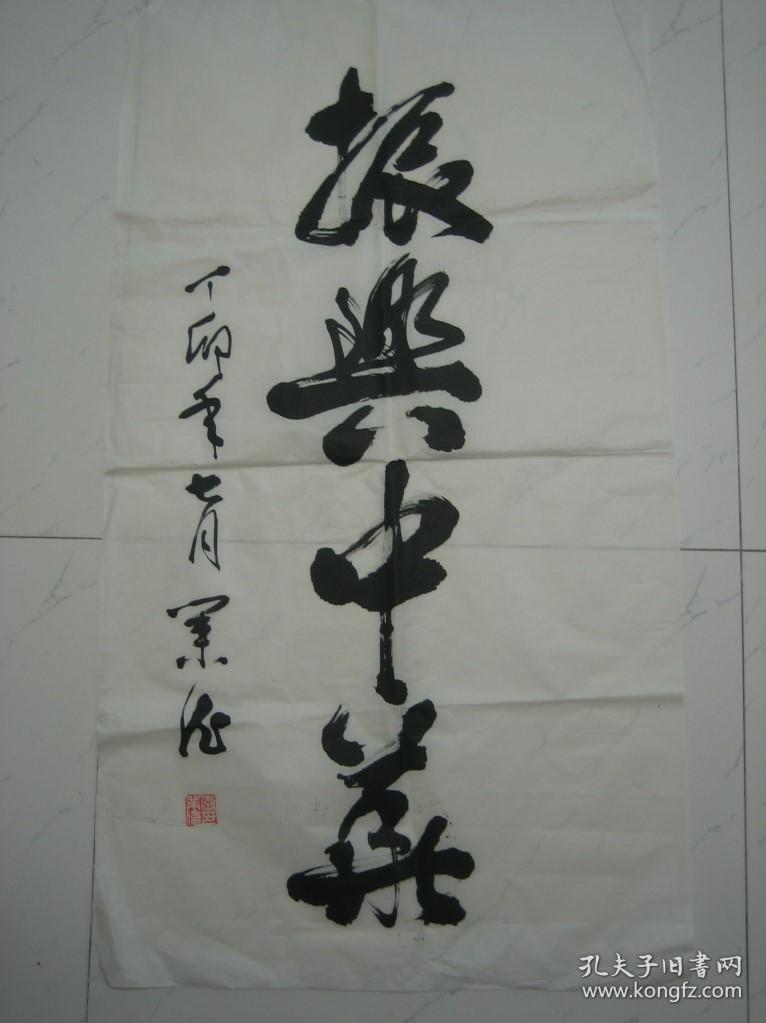 振興中華
丁卯年七月 業
孔夫子旧書网
www.kongfz.com